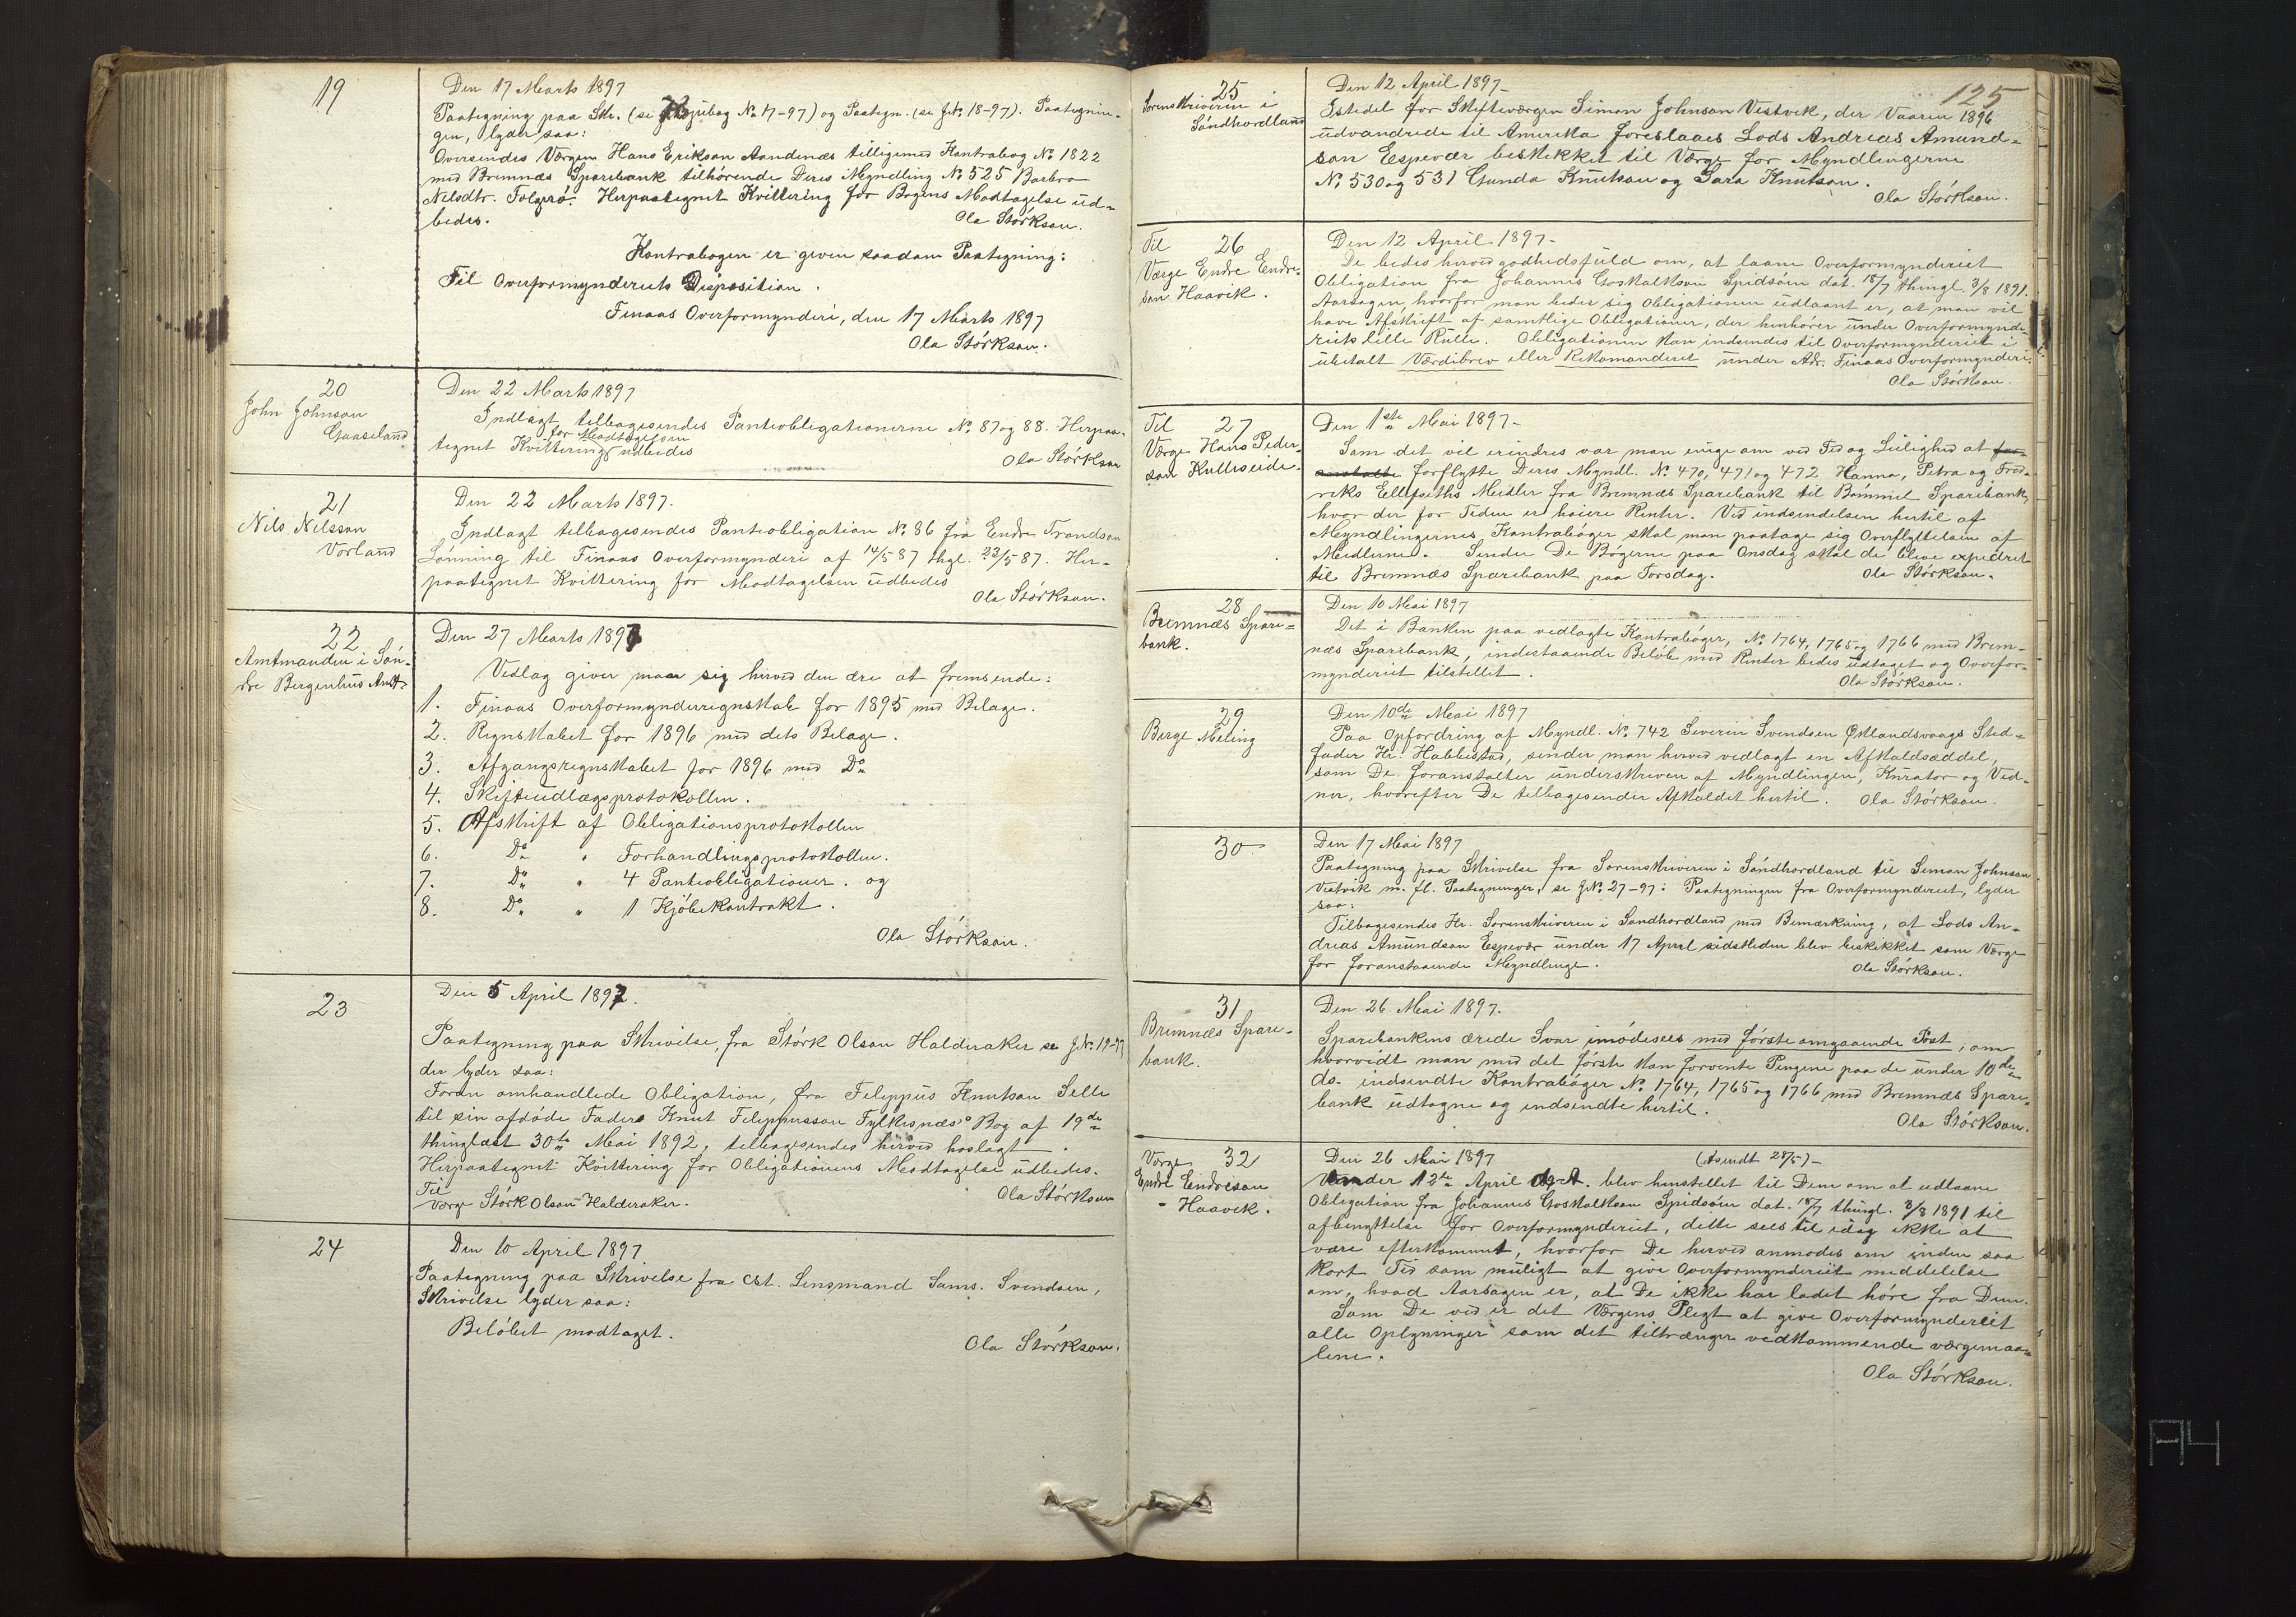 19
Den 17 Marts 1897
Paategning paa Skr. (se Kopibog No 17-97) og Paategn. (se JNo. 18-97). Paategnin-
gen, lyder saa:
Oversendes Værgen Hans Erikson Aandenæs tilligemed Kontrabog No 1822
med Bremnæs Sparebank tilhørende Deres Myndling No 525 Barbro
Nelsdtr. Folgerö. Herpaategnet Kvittering for Bogens Modtagelse ud-
bedes.
Ola Störkson.
Kontrabogen er given saadan Paategning:
Til Overformynderiets Disposition.
Finaas Overformynderi, den 17 Marts 1897
Ola Störkson.
20
John Johnson
Gaaseland
Den 22 Marts 1897
Indlagt tilbagesendes Panteobligationerne No 87 og 88. Herpaa-
for Modtagelsen
tegnet Kvittering udbedes
Ola Störkson
21
Nils Nilsson
Vorland
Den 22 Marts 1897.
Indlagt tilbagesendes Panteobligation No. 86 fra Endre Trondson
Lönning til Finaas Overformynderi af 14/5 87 thgl. 23/5 87. Her-
paategnet Kvittering for Modtagelsen udbedes
Ola Störkson.
22
Amtmanden i Sön-
dre Bergenhus Amt
Den 27 Marts 1897
Vedlag giver man sig herved den ære at fremsende:
1. Finaas Overformynderregnskab for 1895 med Bilage.
2. Regnskabet for 1896 med dets Bilage.
3. Afgangsregnskabet for 1896 med Do
4. Skifteudlægsprotokollen.
5. Afskrift af Obligationsprotokollen
6. Do " Forhandlingsprotokollen.
7. Do " 4 Panteobligationer. og
8. Do " 1 Kjöbekontrakt.
Ola Störkson.
23
Den 5 April 1897.
Paategning paa Skrivelse, fra Störk Olson Halderaker se JNo. 19-97
der lyder saa:
Foran omhandlede Obligation, fra Filippus Knutson Selle
til sin afdöde Faders Knut Filippusson Fylkesnæs' Bog af 19de
thinglæst 30te Mai 1892, tilbagesendes herved hoslagt.
Herpaategnet Kvittering for Obligationens Modtagelse udbedes.
Til
Værge Störk Olson Halderaker.
Ola Störkson
24
Den 10 April 1897
Paategning paa Skrivelse fra cst. Lensmand Sams. Svendsen,
Skrivelse lyder saa:
Belöbet modtaget.
Ola Störkson.
125
25
Sorenskriveren i
Söndhordland
Den 12 April 1897-
Istedet for Skifteværgen Simon Johnson Vestvik, der Vaaren 1896
udvandrede til Amerika foreslaaes Lods Andreas Amund-
son Espevær beskikket til Værge for Myndlingerne
No 530 og 531 Gunda Knutson og Sara Knutson.
Ola Störkson.
Til 26
Værge Endre Endre-
sen Haavik.
Den 12 April 1897-
De bedes herved godhedsfuld om, at laane Overformynderiet
Obligation fra Johannes Goskalkson Spidsöen dat. 18/7 thingl. 3/8 1891.
Aarsagen, hvorfor man beder sig Obligationen udlaant er, at man vil
have Afskrift af samtlige Obligationer, der henhörer under Overformynde-
riets lille Rulle. Obligationen kan indsendes til Overformynderiet i
ubetalt Værdibrev eller Rekomanderet under Adr. Finaas Overformynderi.
Ola Störkson.
Til 27
Værge Hans Peder-
son Kulleseide.
Den 1ste Mai 1897-
Som det vil erindres var man enige om ved Tid og Leilighed at for-
anstalte forflytte Deres Myndl. No. 470, 471 og 472 Hanna, Petra og Fred-
riks Ellefseths Midler fra Bremnæs Sparebank til Bömmel Sparebank,
hvor der for Tiden er höiere Renter. Ved indsendelsen hertil af
Myndlingernes Kontraböger skal man paatage sig Overflyttelsen af
Midlerne. Sender De Bögerne paa Onsdag skal de blive expederet
til Bremnæs Sparebank paa Torsdag.
Ola Störkson.
28
Bremnæs Spare=
bank.
Den 10 Mai 1897
Det i Banken paa vedlagte Kontraböger, No. 1764, 1765 og 1766 med Brem-
næs Sparebank, indestaaende Belöb med Renter bedes udtaget og Overfor-
mynderiet tilstillet.
Ola Störkson.
29
Berge Meling
Den 10de Mai 1897
Paa Opfordring af Myndl. No. 742 Severin Svendsen Øklandsvaags Sted-
fader Hr. Habbestad, sender man herved vedlagt en Afkaldsæddel,
som De foranstalter underskreven af Myndlingen, Kurator og Vid-
ner, hvorefter De tilbagesender Afkaldet hertil. Ola Störkson.
30
Den 17 Mai 1897
Paategning paa Skrivelse fra Sorenskriveren i Söndhordland til Simon Johnson
Vestvik m. fl. Paategninger, se JNo. 27-97: Paategningen fra Overformynderiet, lyder
saa:
Tilbagesendes Hr. Sorenskriveren i Söndhordland med Bemærkning, at Lods An-
dreas Amundson Espevær under 17 April sidstleden blev beskikket som Værge
for foranstaaende Myndlinge.
Ola Störkson.
31
Bremnæs Spare-
bank.
Den 26 Mai 1897.
Sparebankens ærede Svar imödesees med förste omgaaende Post, om
hvorvidt man med det förste kan forvente Pengene paa de under 10de
ds. indsendte Kontraböger No. 1764, 1765 og 1766 med Bremnæs Spare-
bank udtagne og indsendte hertil.
Ola Störkson.
Værge 32
Endre Endreson
- Haavik.
Den 26 Mai 1897 (Asendt 28/5)-
Under 12te April d.A. blev henstillet til Dem om at udlaane
Obligation fra Johannes Goskalkson Spidsöen dat. 18/7 thingl. 3/8 1891 til
afbenyttelse for Overformynderiet, dette sees til idag ikke at
være efterkommet, hvorfor De herved anmodes om inden saa
kort Tid som muligt at give Overformynderiet meddelelse
om, hvad Aarsagen er, at De ikke har ladet höre fra Dem.
Som De ved er det Værgens Pligt at give Overformynderiet
alle Oplysninger som det tiltrænger vedkommende værgemaa-
lene.
Ola Störkson.